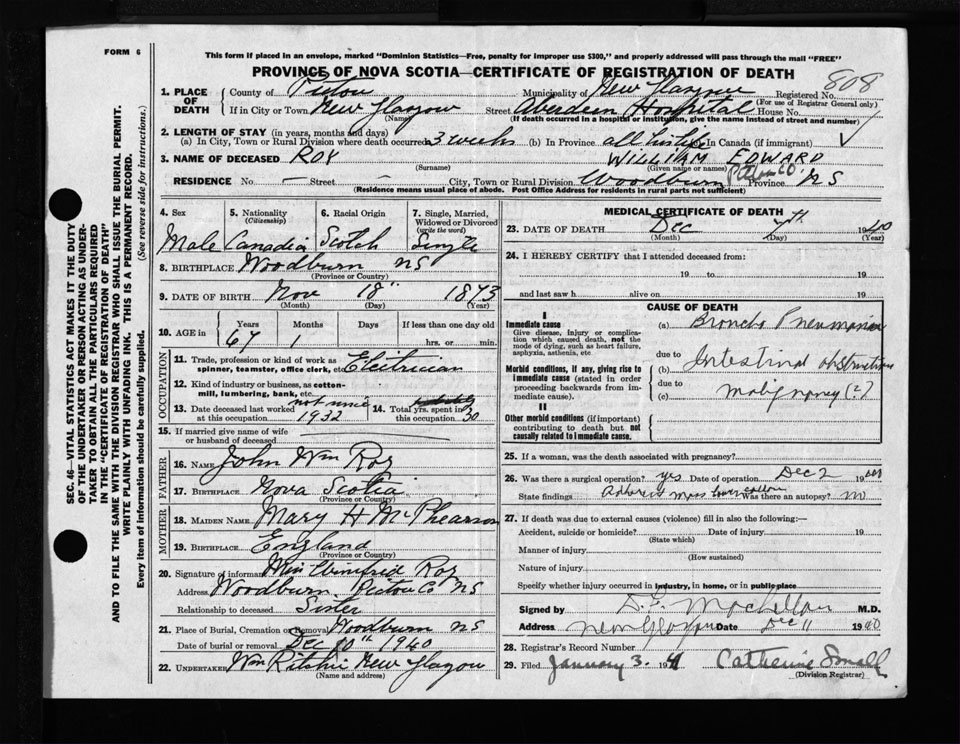 FORM 6
This form if placed in an envelope, marked "Dominion Statistics—Free, penalty for improper use $300," and properly addressed will pass through the mail "FREE"
PROVINCE OF NOVA SCOTIA—CERTIFICATE OF REGISTRATION OF DEATH
808
SEC. 46—VITAL STATISTICS ACT MAKES IT THE DUTY
OF THE UNDERTAKER OR PERSON ACTING AS UNDER-
TAKER TO OBTAIN ALL THE PARTICULARS REQUIRED
IN THE "CERTIFICATE OF REGISTRATION OF DEATH"
AND TO FILE THE SAME WITH THE DIVISION REGISTRAR WHO SHALL ISSUE THE BURIAL PERMIT.
WRITE PLAINLY WITH UNFADING INK. THIS IS A PERMANENT RECORD.
Every item of information should be carefully supplied. (See reverse side for instructions.)
1. PLACE OF DEATH
County of Pictou Municipality of New Glasgow Registered No.
(For use of Registrar General only)
If in City or Town New Glasgow Street Aberdeen Hospital House No.
(Name) (If death occurred in a hospital or institution, give the name instead of street and number)
2. LENGTH OF STAY (in years, months and days)
(a) In City, Town or Rural Division where death occurred 3 weeks (b) In Province all his life (c) In Canada (if immigrant)
3. NAME OF DECEASED ROY WILLIAM EDWARD
(Surname) (Given name or names)
RESIDENCE No — Street — City, Town or Rural Division Woodburn Pictou Co. Province NS
(Residence means usual place of abode. Post Office Address for residents in rural parts not sufficient)
4. Sex Male
5. Nationality (Citizenship) Canadia
6. Racial Origin Scotch
7. Single, Married, Widowed or Divorced (write the word) Single
8. BIRTHPLACE Woodburn NS
(Province or Country)
9. DATE OF BIRTH Nov 18" 1873
(Month) (Day) (Year)
10. AGE in Years Months Days If less than one day old
67 1 hrs. or min.
OCCUPATION
11. Trade, profession or kind of work as
spinner, teamster, office clerk, etc. Elcitrician
12. Kind of industry or business, as cotton-
mill, lumbering, bank, etc.
13. Date deceased last worked at this occupation not since 1932 14. Total yrs. spent in this occupation 30
15. If married give name of wife
or husband of deceased
FATHER
16. NAME John Wm Roy
17. BIRTHPLACE Nova Scotia
(Province or Country)
MOTHER
18. MAIDEN NAME Mary H McPhearson
19. BIRTHPLACE England
(Province or Country)
20. Signature of informant Winifred Roy
Address Woodburn Pictou Co NS
Relationship to deceased Sister
21. Place of Burial, Cremation or Removal Woodburn NS
Date of burial or removal Dec 10" 1940
22. UNDERTAKER Wm Ritchie New Glasgow
(Name and address)
MEDICAL CERTIFICATE OF DEATH
23. DATE OF DEATH Dec 7th 1940
(Month) (Day) (Year)
24. I HEREBY CERTIFY that I attended deceased from:
19 to 19
and last saw h alive on 19
CAUSE OF DEATH
I
Immediate cause
Give disease, injury or complica-
tion which caused death, not the
mode of dying, such as heart failure,
asphyxia, asthenia, etc
(a) Broncho Pneumonia
due to
Morbid conditions, if any, giving rise to
immediate cause (stated in order
proceeding backwards from im-
mediate cause).
(b) Intestinal obstruction
due to
(c) malignancy (?)
II
Other morbid conditions (if important)
contributing to death but not
causally related to immediate cause.
25. If a woman, was the death associated with pregnancy?
26. Was there a surgical operation? yes Date of operation Dec 2 19
State findings Was there an autopsy? no
27. If death was due to external causes (violence) fill in also the following:—
Accident, suicide or homicide? Date of injury 19
(State which)
Manner of injury
(How sustained)
Nature of injury
Specify whether injury occurred in industry, in home, or in public place
Signed by M.D.
Address New Glasgow Date Dec 11 1940
28. Registrar's Record Number
29. Filed January 3. 1941 Catherine Small
(Division Registrar)